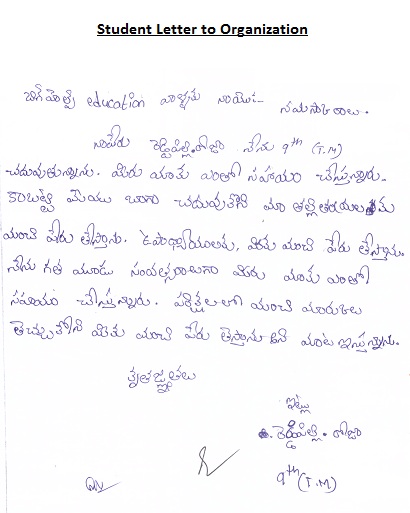 Student Letter to Organization
బిగ్ హెల్ప్ education వాళ్ళకు నాయొక్క నమస్కారాలు.
నాపేరు రెడ్డిపల్లి.రోజా నేను 9th (T.M)
చదువుతున్నాను. మీరు మాకు ఎంతో సహాయం చేస్తున్నారు.
కాబట్టి మేము బాగా చదువుకొని మా తల్లితండ్రులకు
మంచి పేరు తెస్తాను. ఉపాధ్యాయులకు, మీకు మంచి పేరు తెస్తాను.
నేను గత మూడు సంవత్సరాలుగా మీరు మాకు ఎంతో
సహాయం చేస్తున్నారు. పరీక్షలలో మంచి మార్కులు
తెచ్చుకొని మీకు మంచి పేరు తెస్తాను అని మాట ఇస్తున్నాను.
కృతజ్ఞతలు
ఇట్లు
రెడ్డిపల్లి. రోజా
9th (T.M)